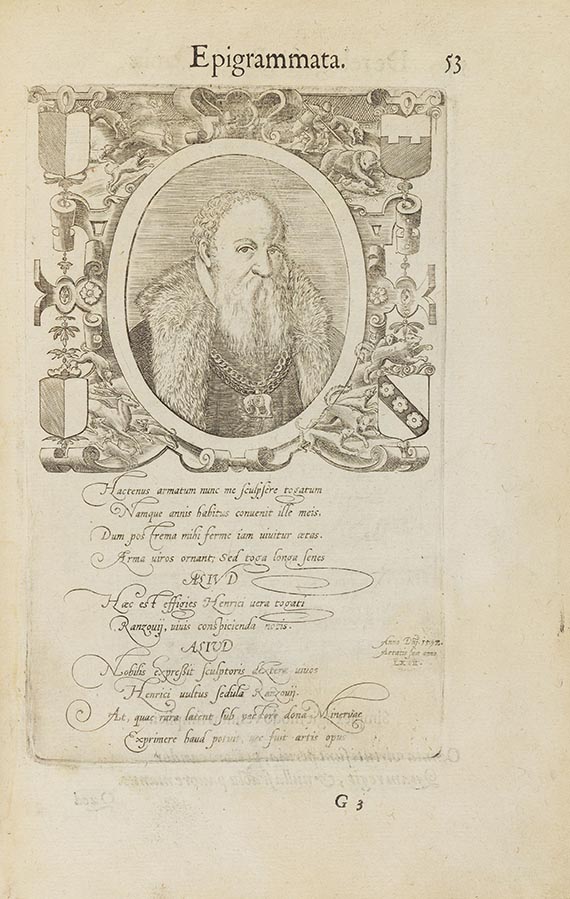 Epigrammata.
53
Hactenus armatum nunc me sculpsere togatum
Namque annis habitus convenit ille meis.
Dum postrema mihi ferme iam vivitur ætas.
Arma viros ornant; Sed toga longa senes
ALIVD
Hæc est effigies Henrici vera togati
Ranzovij, vivis conspicienda notis.
ALIVD
Nobilis expressit sculptoris dextera vivos
Henrici vultus sedula Ranzovij.
At, quæ rara latent sub pectore dona Minervæ
Exprimere haud potuit, nec fuit artis opus
Anno Dni
Ætatis suæ anno
G 3